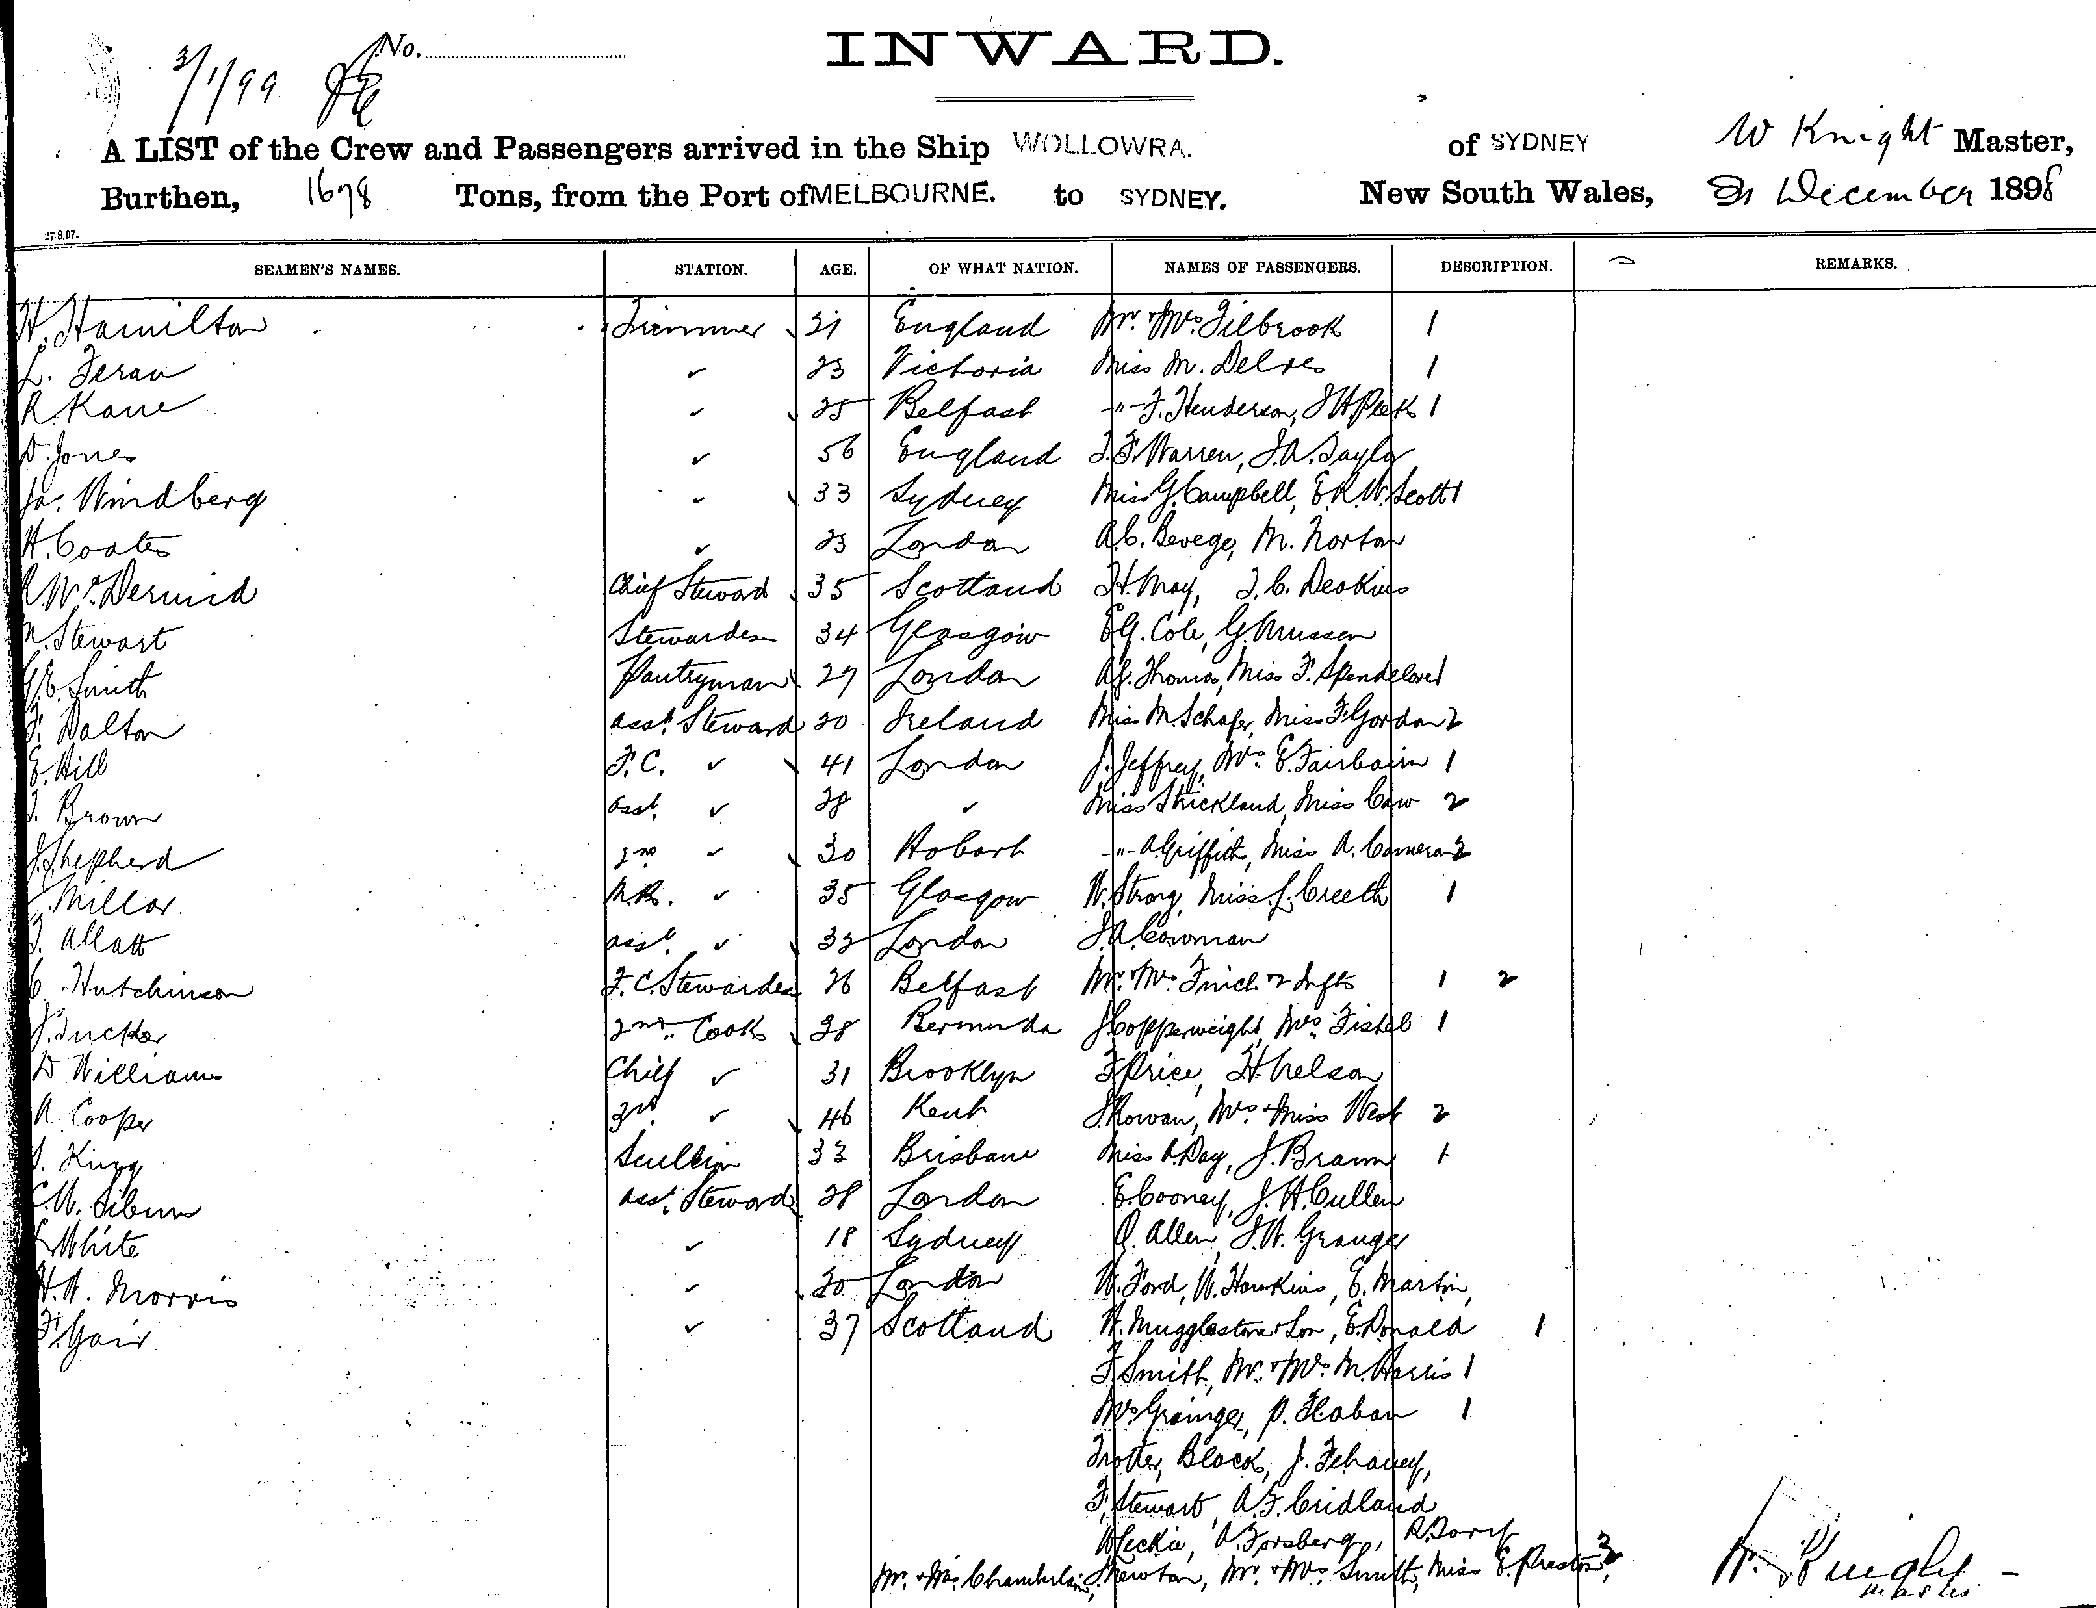 No.
INWARD.
3/1/99
A LIST of the Crew and Passengers arrived in the Ship WOLLOWRA. of SYDNEY W Knight Master,
Burthen, 1678 Tons, from the Port of MELBOURNE. to SYDNEY. New South Wales, 31 December 1898
SEAMEN'S NAMES. STATION. AGE. OF WHAT NATION. NAMES OF PASSENGERS. DESCRIPTION. REMARKS.
H. Hamilton Trimmer 21 England Mr. & Mrs Tilbrook 1
L. Feran ✓ 23 Victoria Miss M. Delves 1
R. Kane ✓ 25 Belfast -"- F. Henderson, J H Peek 1
D. Jones ✓ 56 England T. F. Warren, J. A. Taylor
Windberg ✓ 33 Sydney Miss G. Campbell, E. R. W. Scott 1
H. Coates ✓ 23 London A. C. Bevege, M. Norton
McDermid Chief Steward 35 Scotland H. May, T. C. Deakins
Stewart Stewardess 34 Glasgow E G. Cole, G. Mussen
G. E. Smith Pantryman 29 London A J. Thomas, Miss F. Spendelove 1
F. Dalton asst. Steward 20 Ireland Miss M Schafer, Miss F. Gordon 2
E. Hill F. C. ✓ 41 London J. Jeffrey, Mrs. E. Fairbairn 1
Brown asst. ✓ 28 ✓ Miss Strickland, Miss Caw 2
J. Shepherd 2nd ✓ 30 Hobart -"- A Griffith, Miss A. Cameron 2
Millar ✓ 35 Glasgow W. Strong, Miss L. Creeth 1
Allatt asst. ✓ 32 London J. A. Cowman
C. Hutchinson F. C. Stewardess 26 Belfast Mr. & Mrs Finch & Infts 1 2
J. Tucker 2nd Cook 38 Bermuda J Copperweight, Mrs. Fishel 1
D Williams Chief ✓ 31 Brooklyn F Price, H. Nelson
A. Cooper 3rd ✓ 46 Kent J Rowan, Mrs & Miss West 2
King Scullion 33 Brisbane Miss Day, J. Brown 1
C. W. Silburn asst. Steward 28 London E. Cooney, J. H. Cullen
White ✓ 18 Sydney Allen, J. W. Granger
H. W. Morris ✓ 20 London W. Ford, W. Hawkins, C. Martin,
F. Gair ✓ 37 Scotland H. Mugglestone & Son, E. Donald 1
F. Smith, Mr. & Mrs. M. Harris 1
Mrs Grainger, P. Hoban 1
Trotter, Black, J. Fehaney,
F. Stewart, A. F. Cridland
W Leckie, A. Forsberg,
Mr. & Mrs. Chamberlain, Newton, Mr. & Mrs. Smith, Miss E. Preston, 3
W. Knight
Master